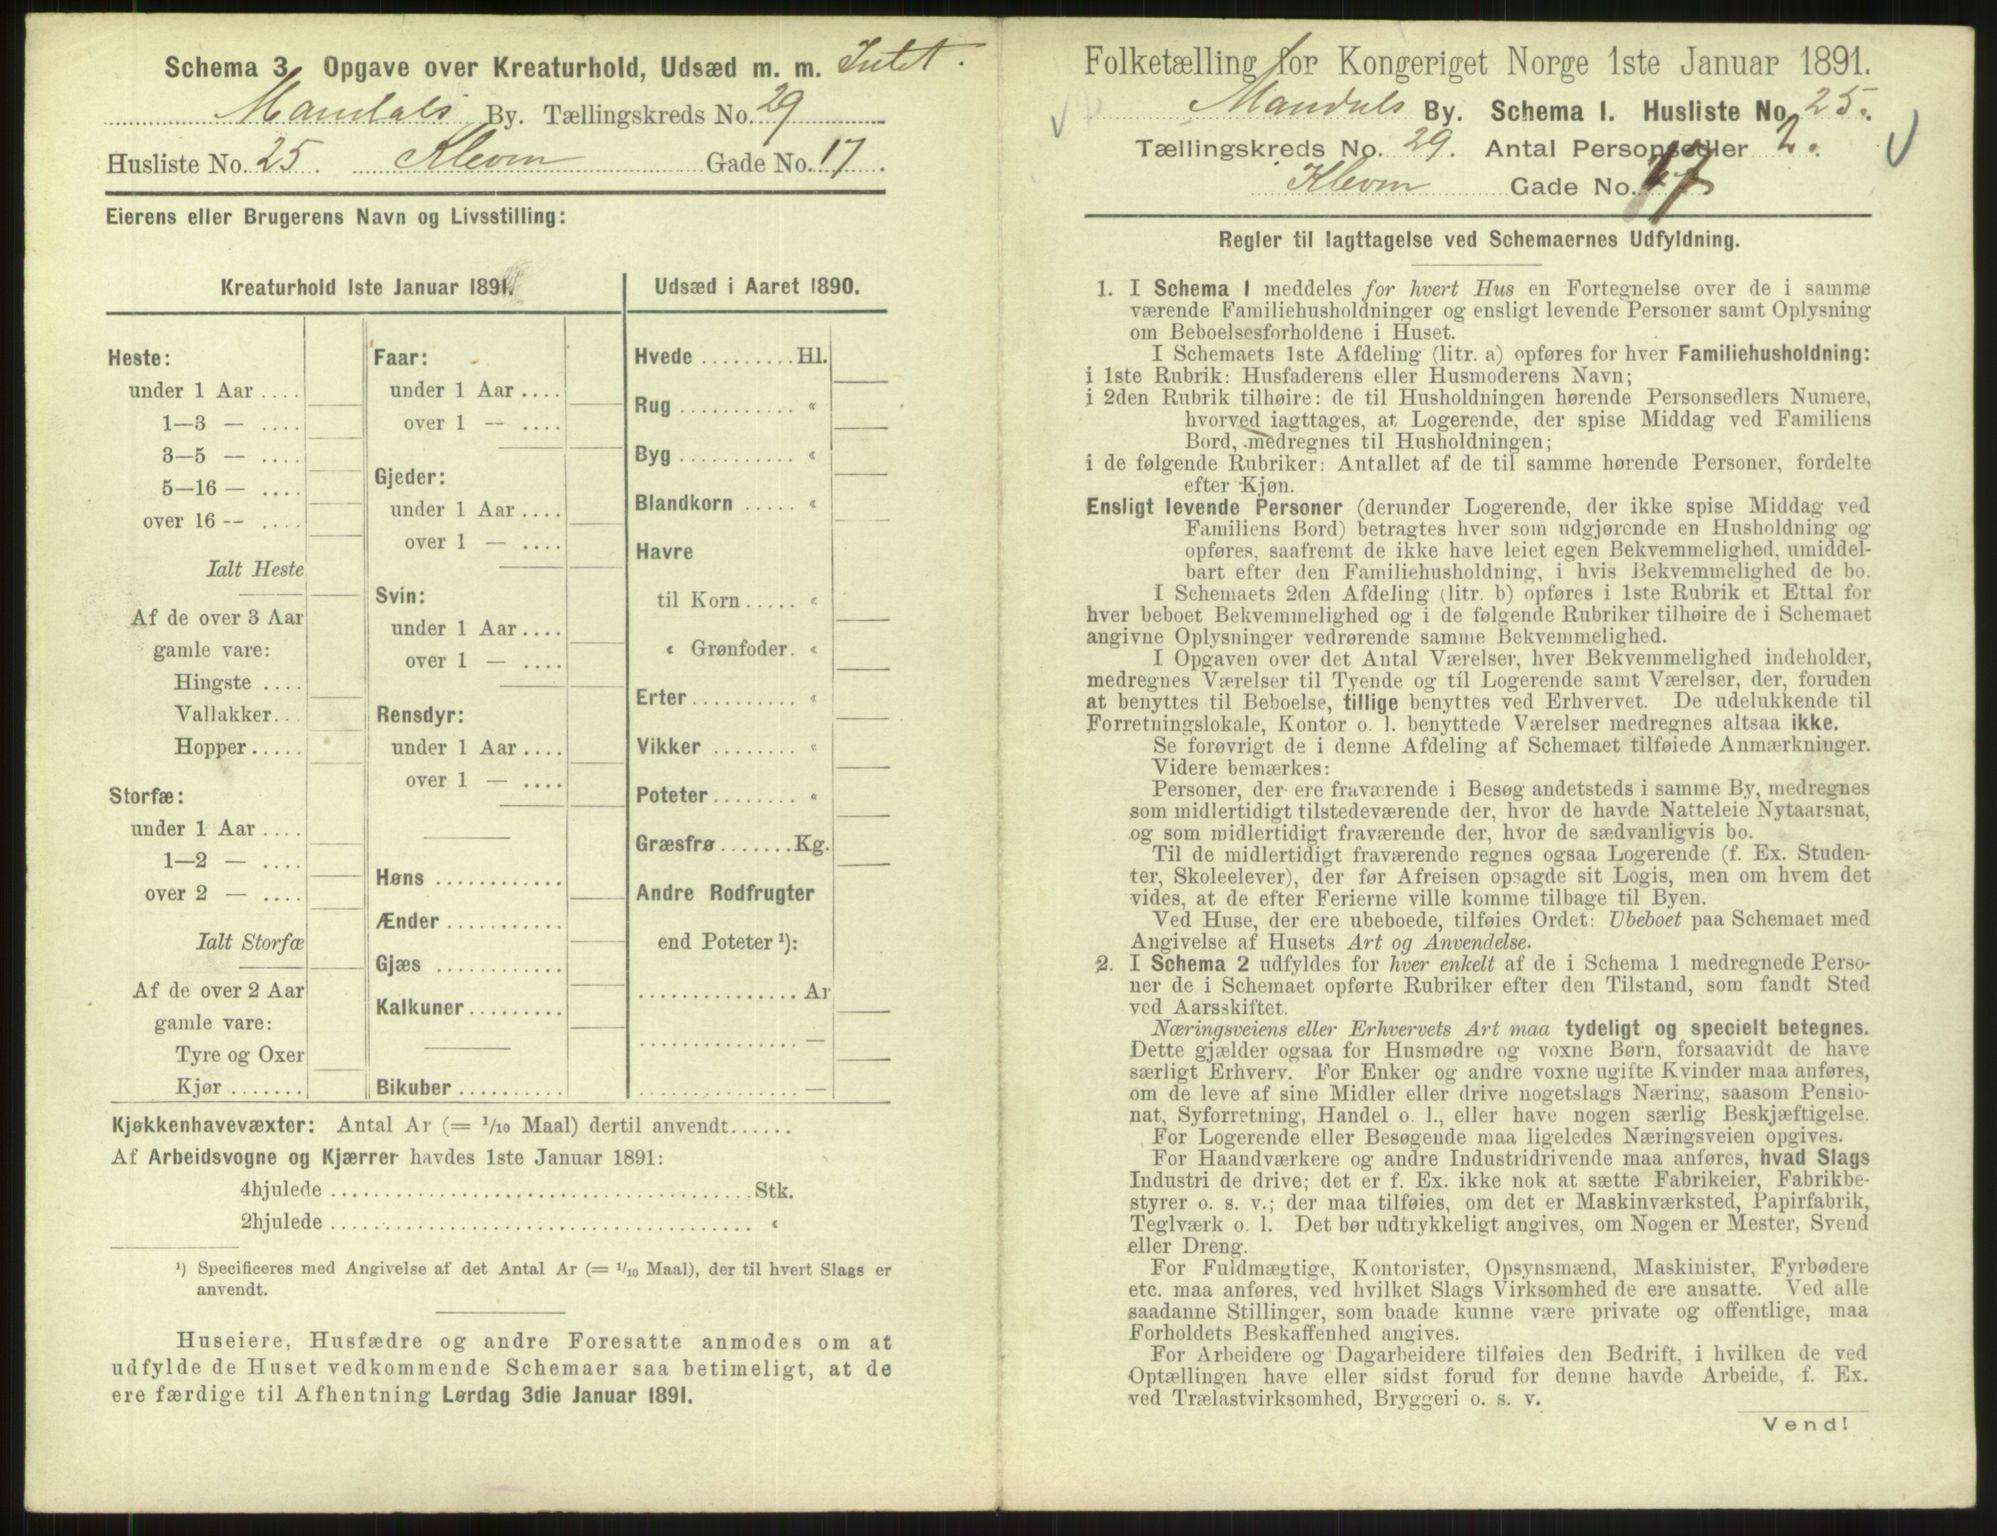 Schema 3. Opgave over Kreaturhold, Udsæd m. m. Intet.
Mandals By. Tællingskreds No. 29
Husliste No. 25. Kleven Gade No. 17.
Eierens eller Brugerens Navn og Livsstilling:
Kreaturhold 1ste Januar 1891.
Heste:
under 1 Aar ....
1—3 — ....
3—5 — ....
5—16 — ....
over 16 -- ....
Ialt Heste
Af de over 3 Aar
gamle vare:
Hingste ....
Vallakker...
Hopper.....
Storfæ:
under 1 Aar ....
1—2 — ....
over 2 — ....
Ialt Storfæ
Af de over 2 Aar
gamle vare:
Tyre og Oxer
Kjør .......
Faar:
under 1 Aar ....
over 1 — ....
Gjeder:
under 1 Aar ....
over 1 — ....
Svin:
under 1 Aar ....
over 1 — ....
Rensdyr:
under 1 Aar ....
over 1 — ....
Høns ............
Ænder ...........
Gjæs ............
Kalkuner.........
Bikuber ..........
Udsæd i Aaret 1890.
Hvede ........ Hl.
Rug ........... «
Byg ........... «
Blandkorn ..... «
Havre
til Korn ..... «
« Grønfoder. «
Erter .......... «
Vikker ........ «
Poteter........ «
Græsfrø ....... Kg.
Andre Rodfrugter
end Poteter ¹):
............... Ar
............... —
............... —
Kjøkkenhavevæxter: Antal Ar (= 1/10 Maal) dertil anvendt......
Af Arbeidsvogne og Kjærrer havdes 1ste Januar 1891:
4hjulede ....................................... Stk.
2hjulede ....................................... «
¹) Specificeres med Angivelse af det Antal Ar (= 1/10 Maal), der til hvert Slags er
anvendt.
Huseiere, Husfædre og andre Foresatte anmodes om at
udfylde de Huset vedkommende Schemaer saa betimeligt, at de
ere færdige til Afhentning Lørdag 3die Januar 1891.
Folketælling for Kongeriget Norge 1ste Januar 1891.
Mandals By. Schema 1. Husliste No. 25.
Tællingskreds No. 29. Antal Personsedler 2.
Kleven Gade No. 17
Regler til Iagttagelse ved Schemaernes Udfyldning.
1. I Schema 1 meddeles for hvert Hus en Fortegnelse over de i samme
værende Familiehusholdninger og ensligt levende Personer samt Oplysning
om Beboelsesforholdene i Huset.
I Schemaets 1ste Afdeling (litr. a) opføres for hver Familiehusholdning:
i 1ste Rubrik: Husfaderens eller Husmoderens Navn;
i 2den Rubrik tilhøire: de til Husholdningen hørende Personsedlers Numere,
hvorved iagttages, at Logerende, der spise Middag ved Familiens
Bord, medregnes til Husholdningen;
i de følgende Rubriker: Antallet af de til samme hørende Personer, fordelte
efter Kjøn.
Ensligt levende Personer (derunder Logerende, der ikke spise Middag ved
Familiens Bord) betragtes hver som udgjørende en Husholdning og
opføres, saafremt de ikke have leiet egen Bekvemmelighed, umiddel-
bart efter den Familiehusholdning, i hvis Bekvemmelighed de bo.
I Schemaets 2den Afdeling (litr. b) opføres i 1ste Rubrik et Ettal for
hver beboet Bekvemmelighed og i de følgende Rubriker tilhøire de i Schemaet
angivne Oplysninger vedrørende samme Bekvemmelighed.
I Opgaven over det Antal Værelser, hver Bekvemmelighed indeholder,
medregnes Værelser til Tyende og til Logerende samt Værelser, der, foruden
at benyttes til Beboelse, tillige benyttes ved Erhvervet. De udelukkende til
Forretningslokale, Kontor o. l. benyttede Værelser medregnes altsaa ikke.
Se forøvrigt de i denne Afdeling af Schemaet tilføiede Anmærkninger.
Videre bemærkes:
Personer, der ere fraværende i Besøg andetsteds i samme By, medregnes
som midlertidigt tilstedeværende der, hvor de havde Natteleie Nytaarsnat,
og som midlertidigt fraværende der, hvor de sædvanligvis bo.
Til de midlertidigt fraværende regnes ogsaa Logerende (f. Ex. Studen-
ter, Skoleelever), der før Afreisen opsagde sit Logis, men om hvem det
vides, at de efter Ferierne ville komme tilbage til Byen.
Ved Huse, der ere ubeboede, tilføies Ordet: Ubeboet paa Schemaet med
Angivelse af Husets Art og Anvendelse.
2. I Schema 2 udfyldes for hver enkelt af de i Schema 1 medregnede Perso-
ner de i Schemaet opførte Rubriker efter den Tilstand, som fandt Sted
ved Aarsskiftet.
Næringsveiens eller Erhvervets Art maa tydeligt og specielt betegnes.
Dette gjælder ogsaa for Husmødre og voxne Børn, forsaavidt de have
særligt Erhverv. For Enker og andre voxne ugifte Kvinder maa anføres,
om de leve af sine Midler eller drive nogetslags Næring, saasom Pensio-
nat, Syforretning, Handel o. l., eller have nogen særlig Beskjæftigelse.
For Logerende eller Besøgende maa ligeledes Næringsveien opgives.
For Haandværkere og andre Industridrivende maa anføres, hvad Slags
Industri de drive; det er f. Ex. ikke nok at sætte Fabrikeier, Fabrikbe-
styrer o. s. v.; der maa tilføies, om det er Maskinværksted, Papirfabrik,
Teglværk o. l. Det bør udtrykkeligt angives, om Nogen er Mester, Svend
eller Dreng.
For Fuldmægtige, Kontorister, Opsynsmænd, Maskinister, Fyrbødere
etc. maa anføres, ved hvilket Slags Virksomhed de ere ansatte. Ved alle
saadanne Stillinger, som baade kunne være private og offentlige, maa
Forholdets Beskaffenhed angives.
For Arbeidere og Dagarbeidere tilføies den Bedrift, i hvilken de ved
Optællingen have eller sidst forud for denne havde Arbeide, f. Ex.
ved Trælastvirksomhed, Bryggeri o. s. v.
Vend!